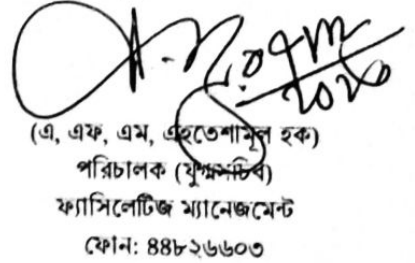 (এ, এফ, এম, এহতেশামূল হক)
পরিচালক (যুগ্মসচিব)
ফ্যাসিলেটিজ ম্যানেজমেন্ট
ফোন: ৪৪৮২৬৬০৩